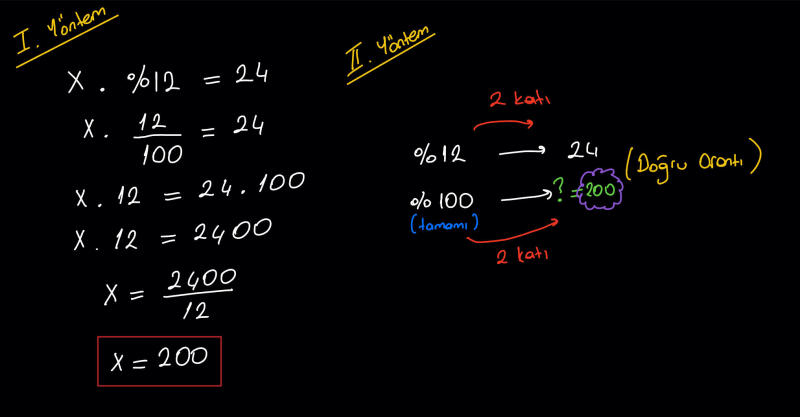 I. Yöntem
X . %12 = 24
X . 12/100 = 24
X . 12 = 24.100
X . 12 = 2400
X = 2400/12
X = 200
II. Yöntem
2 katı
%12 → 24
(Doğru Orantı)
%100 → ? = 200
(tamamı)
2 katı